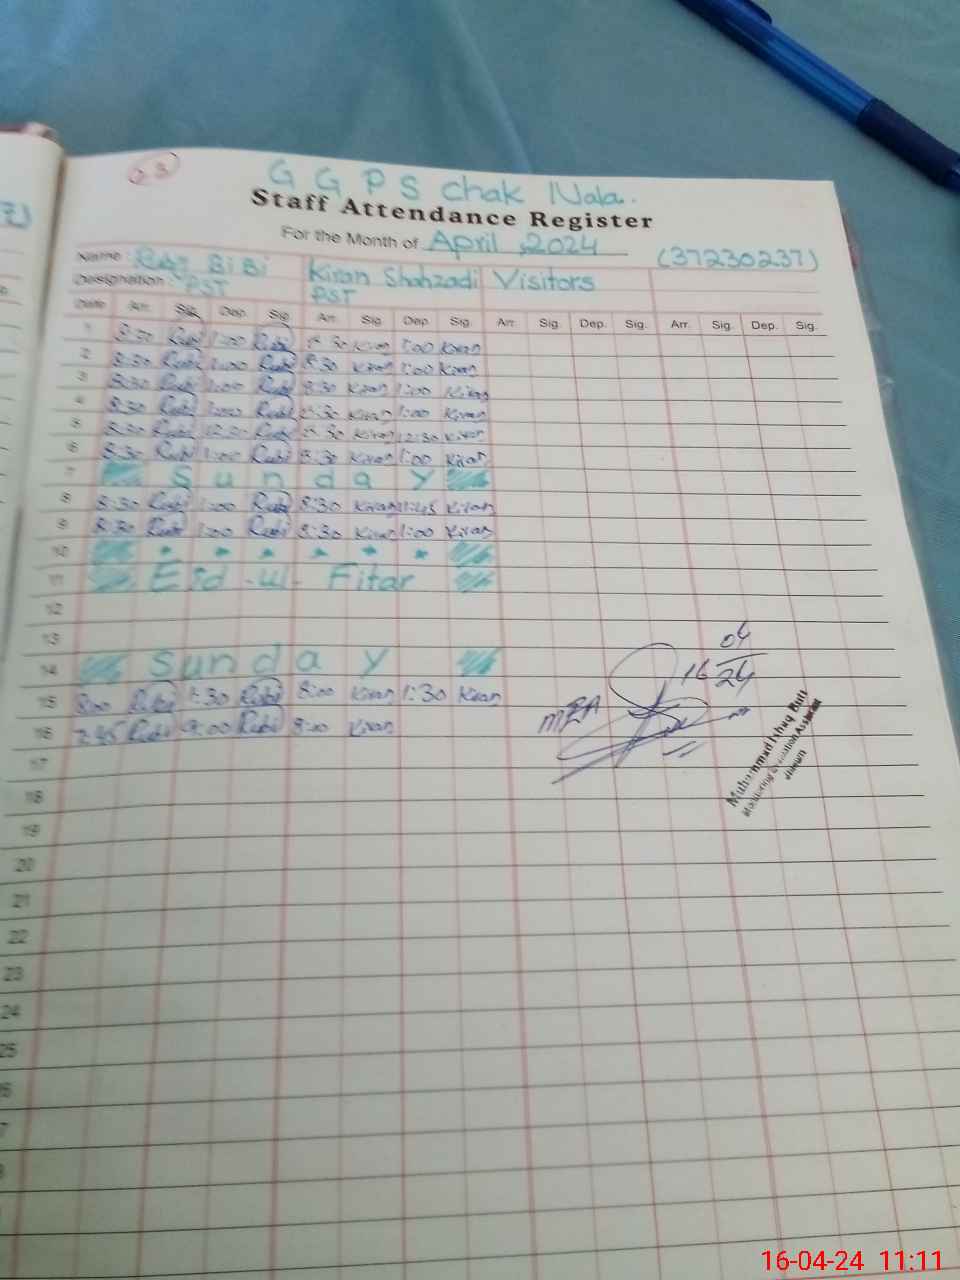 23
G G P S Chak Nala.
Staff Attendance Register
For the Month of April, 2024 (37230237)
Name: Bibi Kiran Shahzadi Visitors
Designation: PST PST
Date Arr. Sig. Dep. Sig. Arr. Sig. Dep. Sig. Arr. Sig. Dep. Sig. Arr. Sig. Dep. Sig.
1 8:30 Rubi 1:00 Rubi 8:30 Kiran 1:00 Kiran
2 8:30 Rubi 1:00 Rubi 8:30 Kiran 1:00 Kiran
3 8:30 Rubi 1:00 Rubi 8:30 Kiran 1:00 Kiran
4 8:30 Rubi 1:00 Rubi 8:30 Kiran 1:00 Kiran
5 8:30 Rubi 12:30 Rubi 8:30 Kiran 12:30 Kiran
6 8:30 Rubi 1:00 Rubi 8:30 Kiran 1:00 Kiran
7 Sunday
8 8:30 Rubi 1:00 Rubi 8:30 Kiran 1:45 Kiran
9 8:30 Rubi 1:00 Rubi 8:30 Kiran 1:00 Kiran
10
11 Eid-ul-Fitar
12
13
14 Sunday
15 8:00 Rubi 1:30 Rubi 8:00 Kiran 1:30 Kiran
16 7:45 Rubi 9:00 Rubi 8:00 Kiran
MEA 16 04 24
Muhammad Ishaq Butt
Monitoring & Evaluation Assistant
Jhelum
17
18
19
20
21
22
23
24
25
16-04-24 11:11